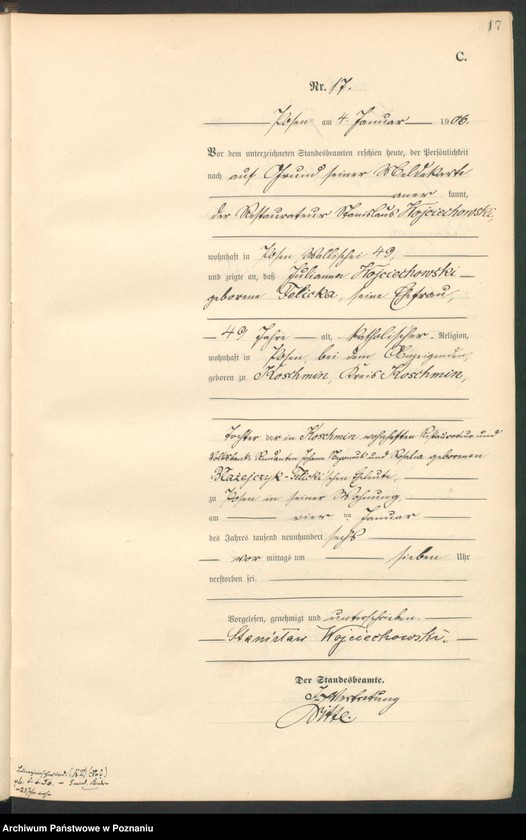 17
C.
Nr. 17.
Posen am 4. Januar 1906.
Vor dem unterzeichneten Standesbeamten erschien heute, der Persönlichkeit
nach auf Grund seiner Meldekarte
aner kannt,
der Restaurateur Stanislaus Wojciechowski,
wohnhaft in Posen Wallischei 49,
und zeigte an, daß Julianna Wojciechowski
geborene Telicka, seine Ehefrau,
49 Jahre alt, katholischer Religion,
wohnhaft in Posen, bei dem Anzeigenden,
geboren zu Koschmin, Kreis Koschmin,
Tochter der in Koschmin wohnhaften Restaurateur und
Volksbank-Rendanten Johann Nepomuk und Rosalia geborenen
Błażejczyk-Telicki'schen Eheleute,
zu Posen in seiner Wohnung,
am vier ten Januar
des Jahres tausend neunhundert sechs
vor mittags um sieben Uhr
verstorben sei.
Vorgelesen, genehmigt und unterschrieben.
Stanisław Wojciechowski.
Der Standesbeamte.
In Vertretung
Witte.
Archiwum Państwowe w Poznaniu